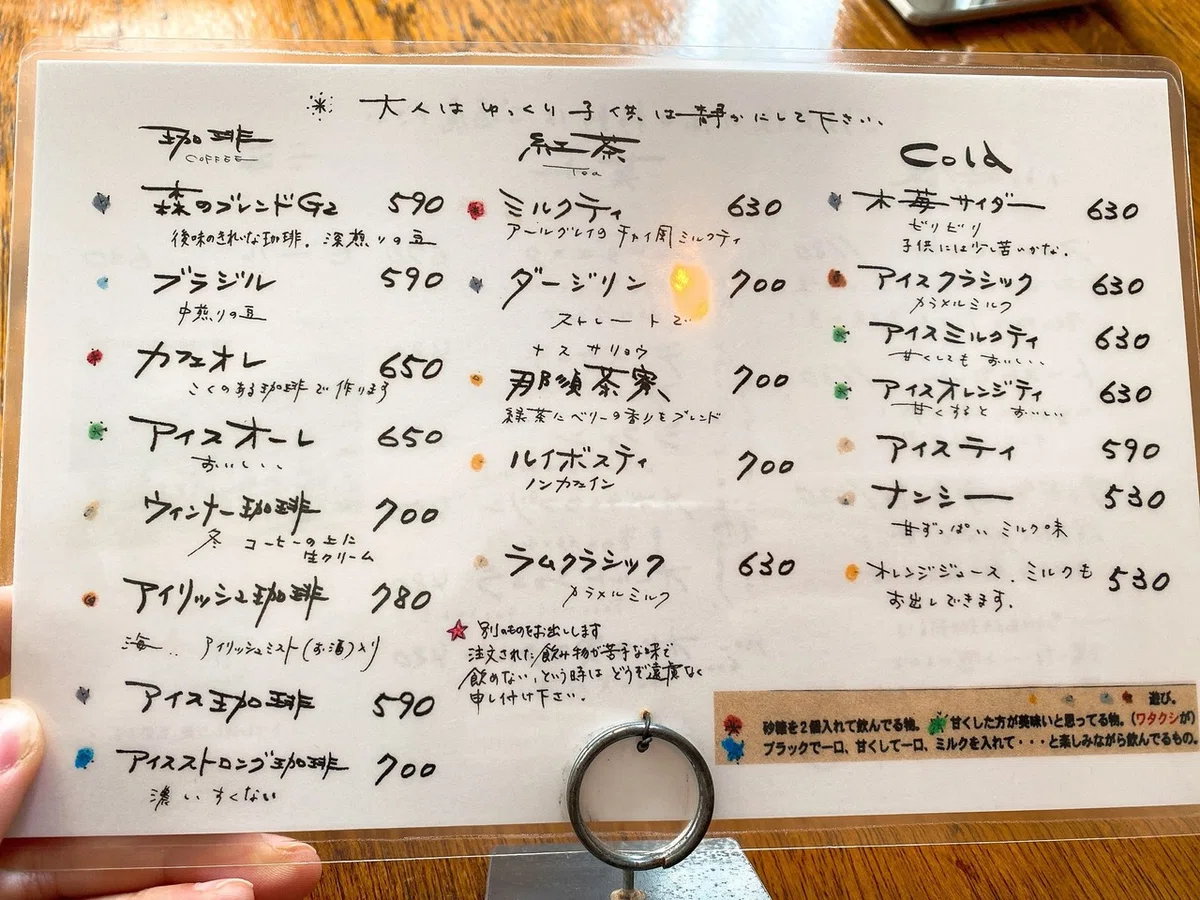 ※ 大人はゆっくり子供は静かにして下さい、
珈琲
COFFEE
森のブレンドG2 590
後味のきれいな珈琲。深煎りの豆
ブラジル 590
中煎りの豆
カフェオレ 650
こくのある珈琲で作ります
アイスオーレ 650
おいしい、
ウィンナー珈琲 700
冬 コーヒーの上に
生クリーム
アイリッシュ珈琲 780
海.. アイリッシュミスト(お酒)入り
アイス珈琲 590
アイスストロング珈琲 700
濃い すくない
紅茶
Tea
ミルクティ 630
アールグレイの チャイ風ミルクティ
ダージリン 700
ストレートで
ナス サリョウ
那須茶寮 700
緑茶にベリーの香りをブレンド
ルイボスティ 700
ノンカフェイン
ラムクラシック 630
カラメルミルク
別のものをお出しします
注文された飲み物が苦手な味で
飲めない、という時は どうぞ遠慮なく
申し付け下さい。
Cold
木苺サイダー 630
ピリピリ
子供には少し苦いかな.
アイスクラシック 630
カラメルミルク
アイスミルクティ 630
甘くしても おいしい、
アイスオレンジティ 630
甘くすると おいしい
アイスティ 590
ナンシー 530
甘ずっぱい ミルク味
オレンジジュース、ミルクも 530
お出しできます.
遊び。
砂糖を2個入れて飲んでる物。 甘くした方が美味いと思ってる物。(ワタクシが)
ブラックで一口、甘くして一口、ミルクを入れて・・・と楽しみながら飲んでるもの。